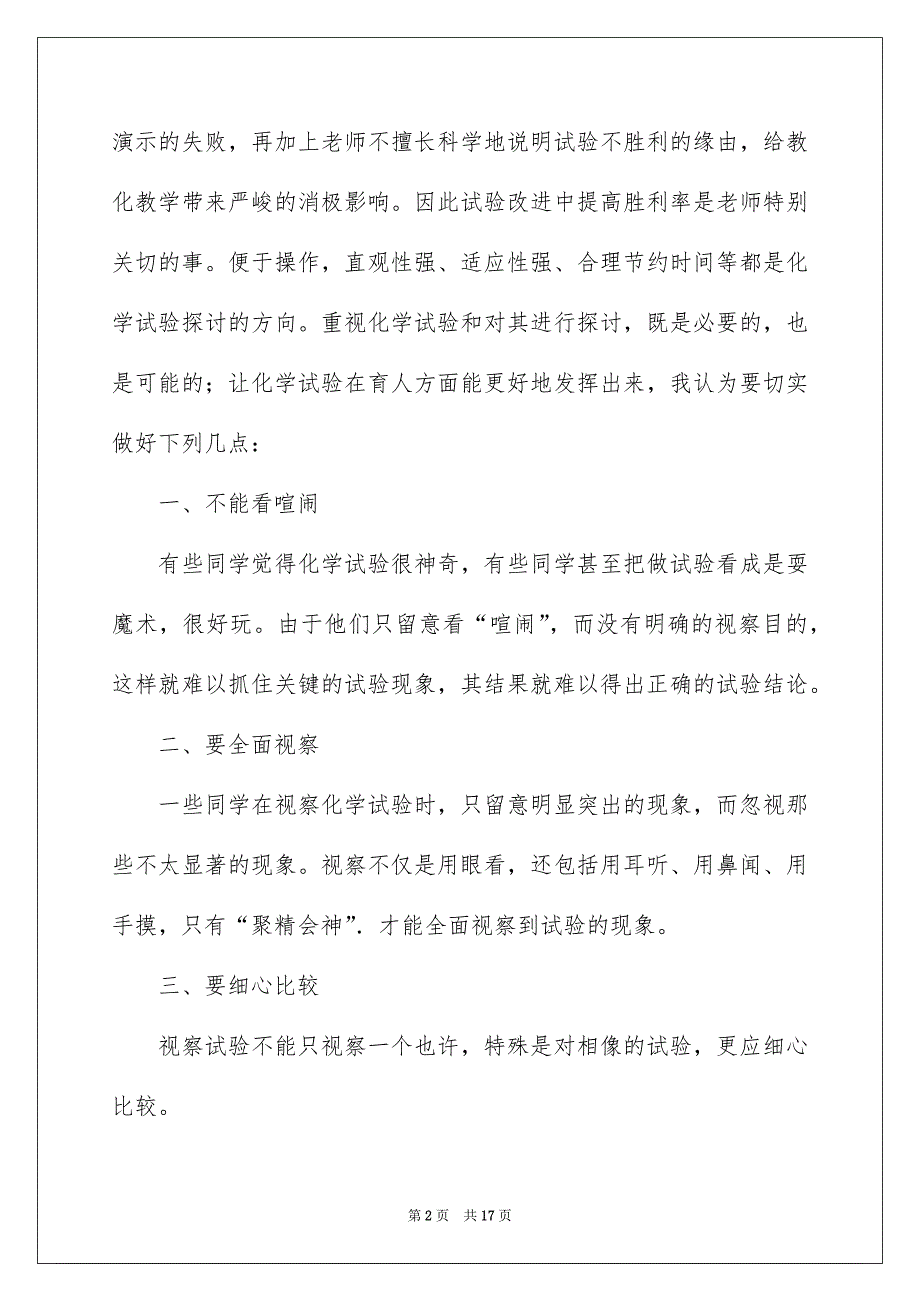 演示的失败，再加上老师不擅长科学地说明试验不胜利的缘由，给教
化教学带来严峻的消极影响。因此试验改进中提高胜利率是老师特别
关切的事。便于操作，直观性强、适应性强、合理节约时间等都是化
学试验探讨的方向。重视化学试验和对其进行探讨，既是必要的，也
是可能的；让化学试验在育人方面能更好地发挥出来，我认为要切实
做好下列几点：
一、不能看喧闹
有些同学觉得化学试验很神奇，有些同学甚至把做试验看成是耍
魔术，很好玩。由于他们只留意看“喧闹”，而没有明确的视察目的，
这样就难以抓住关键的试验现象，其结果就难以得出正确的试验结论。
二、要全面视察
一些同学在视察化学试验时，只留意明显突出的现象，而忽视那
些不太显著的现象。视察不仅是用眼看，还包括用耳听、用鼻闻、用
手摸，只有“聚精会神”．才能全面视察到试验的现象。
三、要细心比较
视察试验不能只视察一个也许，特殊是对相像的试验，更应细心
比较。
第 2 页 共 17 页